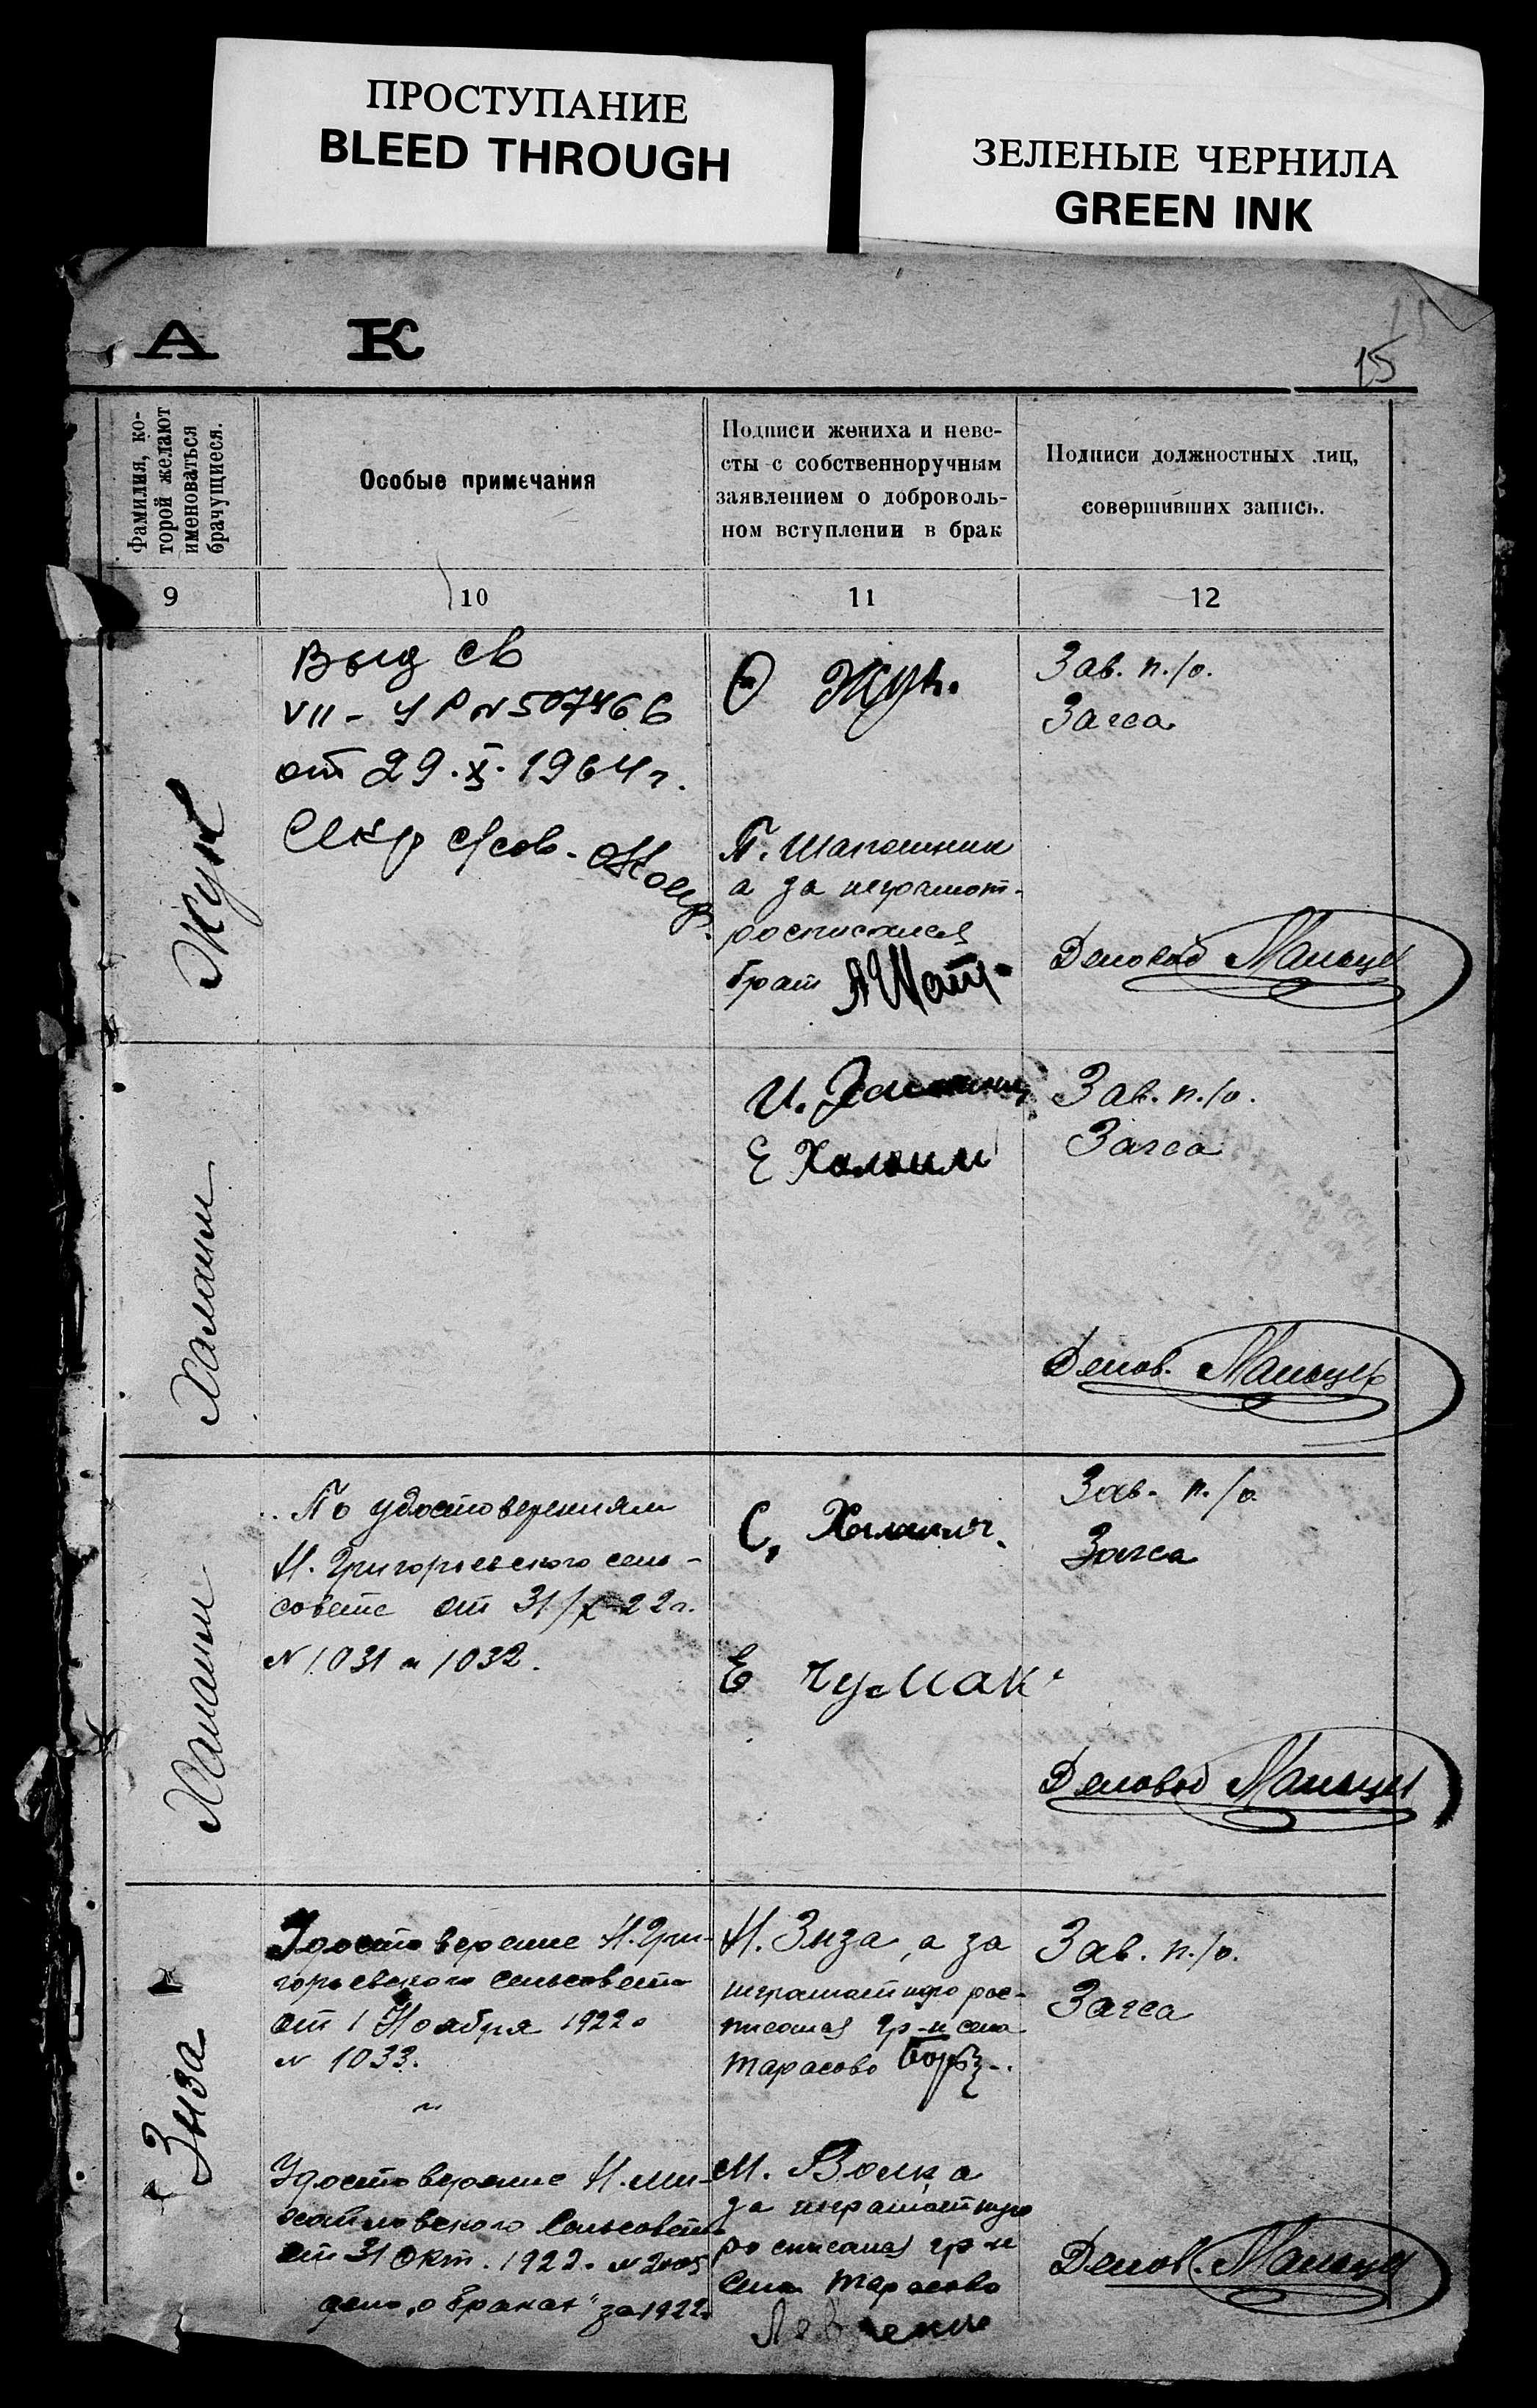 ПРОСТУПАНИЕ
BLEED THROUGH
ЗЕЛЕНЫЕ ЧЕРНИЛА
GREEN INK
А К
15
15
Фамилия, ко-
торой желают
именоваться
брачущиеся.
Особые примечания
Подписи жениха и неве-
сты с собственноручным
заявлением о доброволь-
ном вступлении в брак
Подписи должностных лиц,
совершивших запись.
9
10
11
12
Жук
Выд св
VII - УР № 507466
от 29.X.1964 г.
Секр с/сов -
Ф Жук.
П. Шапошник
а за неграмот-
росписался
брат
Зав. п./о.
Загса
Деловод Мальцев
Халаим
И.
Е Халаим
Зав. п./о.
Загса
Делов. Мальцев
Халаим
По удостоверениям
Н. Григорьевского сель-
совета от 31/X-22 г.
№ 1031 и 1032.
С. Халаим.
Е Чумак
Зав. п./о.
Загса
Деловод Мальцев
Зиза
Удостоверение Н. Гри-
горьевского сельсовета
от 1 Ноября 1922 г
№ 1033.
"
Удостоверение Н. Ми-
хайловского Сельсовета
от 31 Окт. 1922. № 2005
дело „о браках" за 1922г
Н. Зиза, а за
неграмотного рос-
писался гр-н села
Тарасово
М. Волк а
за неграмотную
росписался гр-н
Села Тарасово
Левченко
Зав. п./о.
Загса
Делов. Мальцев